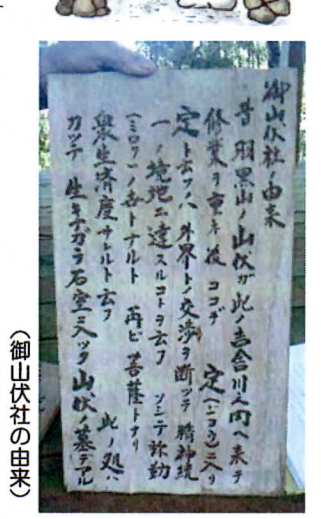 御山伏社ノ由来
昔 羽黒山ノ山伏ガ此ノ合川之内ヘ来テ
修業ヲ重ネ後 ココデ 定(ジヨウ)ニ入リ
定ト云フハ 外界トノ交渉ヲ断ツテ 精神統
一ノ境地ニ達スルコトヲ云フ ソシテ弥勤
(ミロク)ノ トナルト 再ビ菩薩トナリ
衆生済度サレルト云フ 此ノ処ハ
カツテ 生キナガラ石室ニ入ツタ山伏ノ墓デアル
(御山伏社の由来)